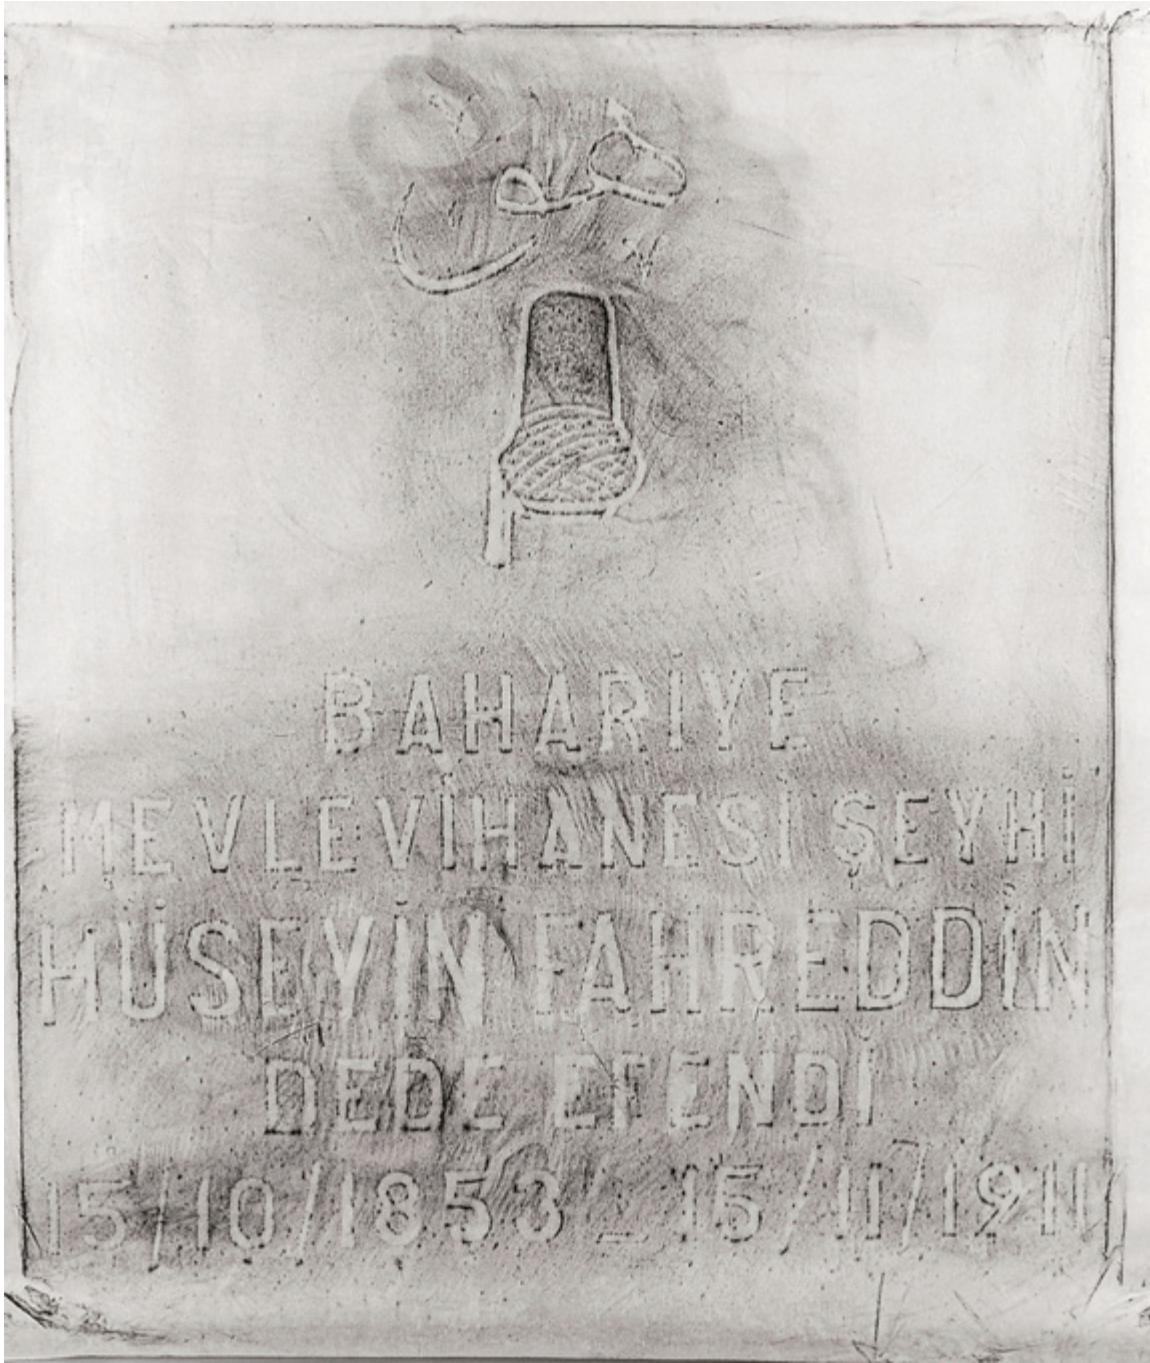 BAHARİYE
MEVLEVİHANESİ ŞEYHİ
HÜSEYİN FAHREDDİN
DEDE EFENDİ
15/10/1853 _ 15/11/1911